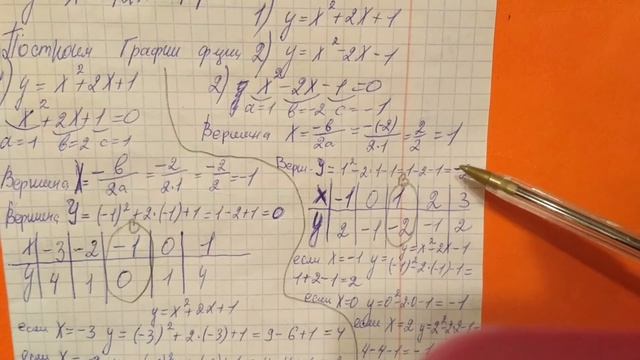 1) y = x² + 2x + 1
Построим Графики функц 2) y = x² - 2x - 1
) y = x² + 2x + 1
x² + 2x + 1 = 0
a=1 в=2 c=1
Вершина X = -в/2a = -2/2·1 = -2/2 = -1
Вершина y = (-1)² + 2·(-1) + 1 = 1 - 2 + 1 = 0
X | -3 | -2 | -1 | 0 | 1
y | 4 | 1 | 0 | 1 | 4
y = x² + 2x + 1
если X = -3 y = (-3)² + 2·(-3) + 1 = 9 - 6 + 1 = 4
2) y x² - 2x - 1 = 0
a=1 в=-2 c=-1
Вершина X = -в/2a = -(-2)/2·1 = 2/2 = 1
Верш. y = 1² - 2·1 - 1 = 1 - 2 - 1 =
X | -1 | 0 | 1 | 2 | 3
y | 2 | -1 | -2 | -1 | 2
y = x² - 2x - 1
если X = -1 y = (-1)² - 2·(-1) - 1 =
1 + 2 - 1 = 2
если X = 0 y = 0² - 2·0 - 1 = -1
если X = 2 y = 2² - 2·2 - 1 =
4 - 4 - 1 = -1